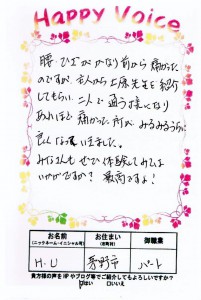 Happy Voice
腰、ひざがかなり前から痛かった
のですが、友人から上原先生を紹介
してもらい、二人で通う様になり
あれほど痛かった所が、みるみるうちに
良くなっていきました。
みなさんも ぜひ体験してみては
いかがですか? 最高ですよ!
お名前
(ニックネーム・イニシャル可)
お住まい
(市町村)
御職業
H・U
茅野市
パート
貴方様の声をHPやブログ等でご紹介してもよろしいですか?
はい
□いいえ